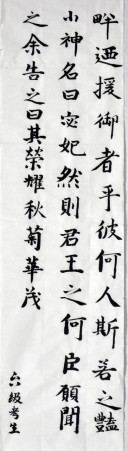 畔迺援御者乎彼何人斯若之豔
小神名曰宓妃然則君王之何臣願聞
之余告之曰其榮耀秋菊華茂
六級考生